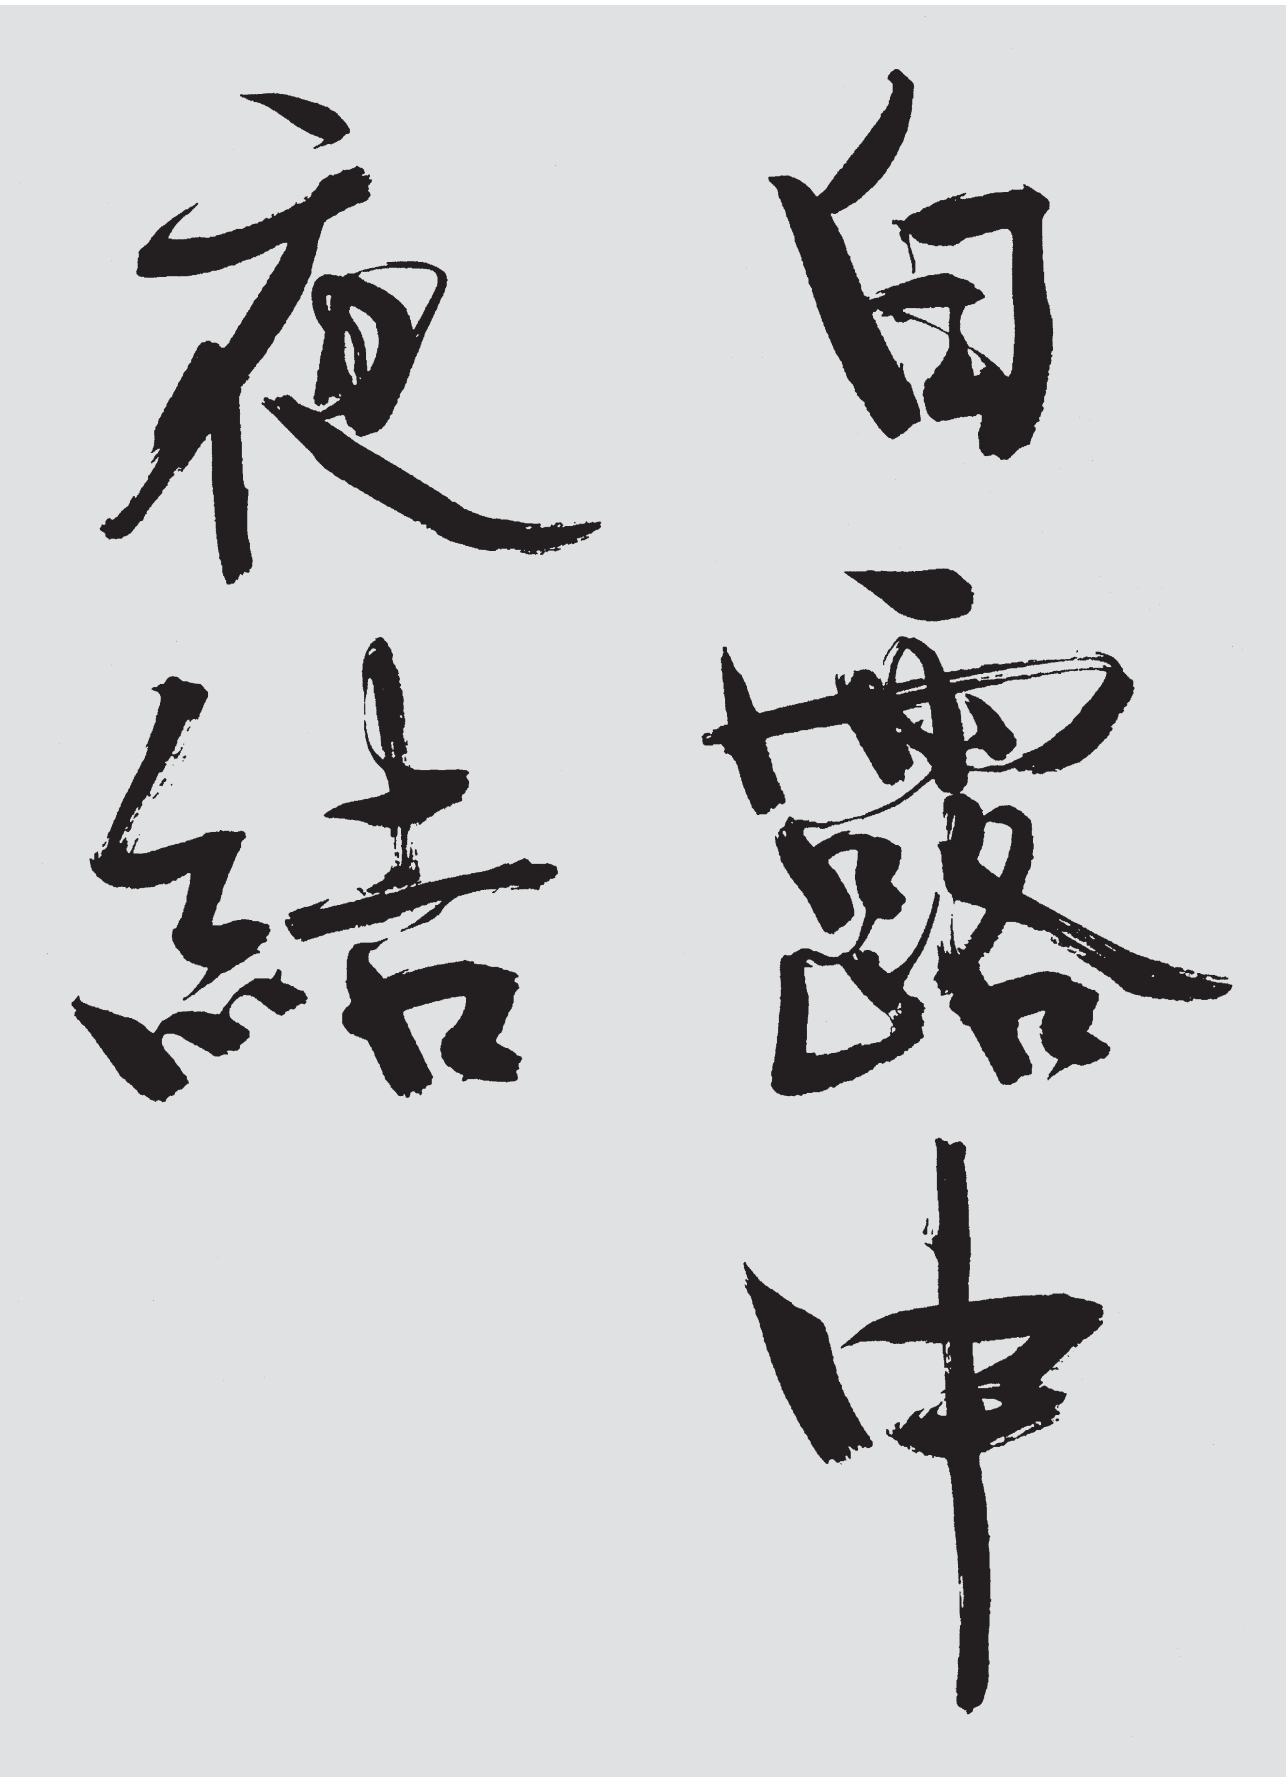 白露中
夜結